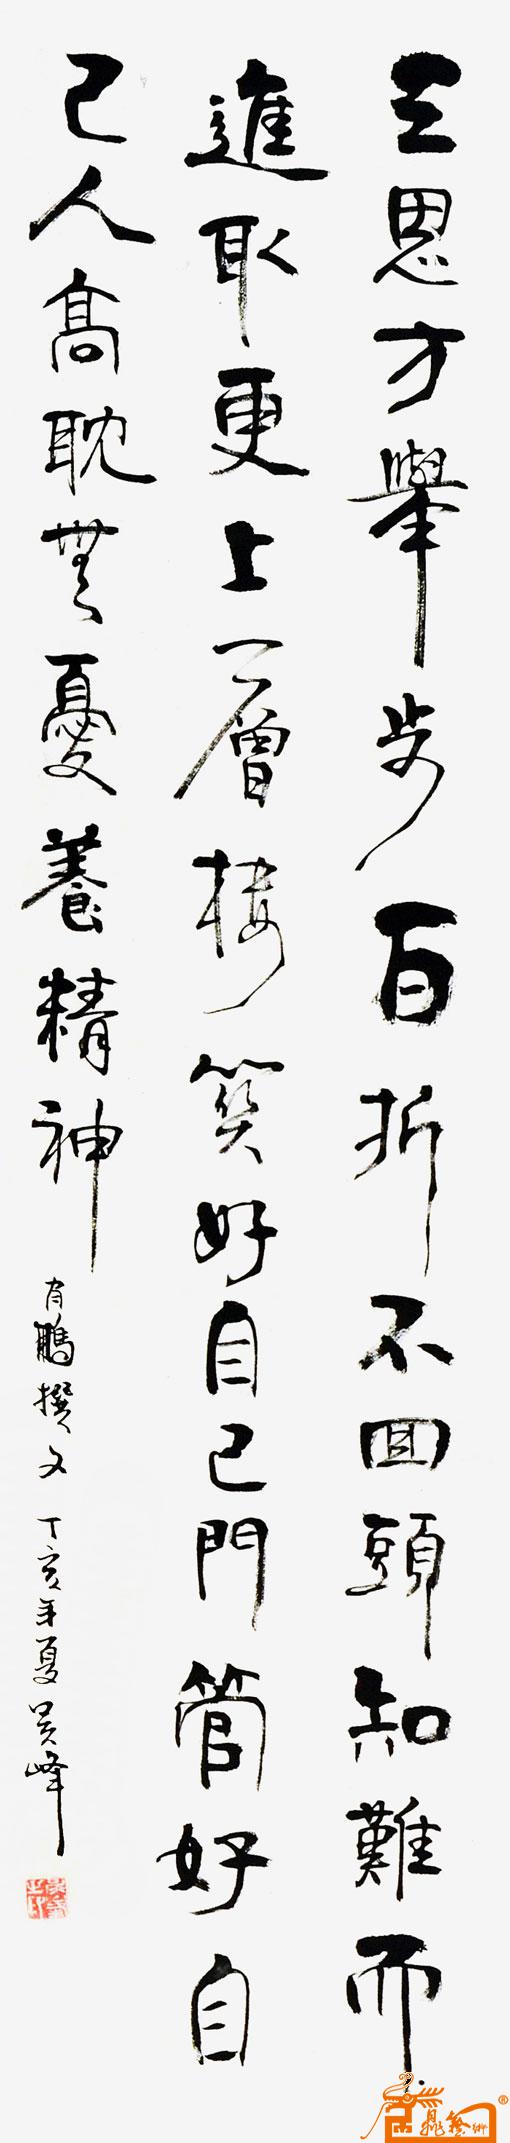 三思方舉步百折不回頭知難而
進取更上一層樓笑好自己門管好自
己人高耽無憂養精神
肖鵬撰文 丁亥年夏 吴峰